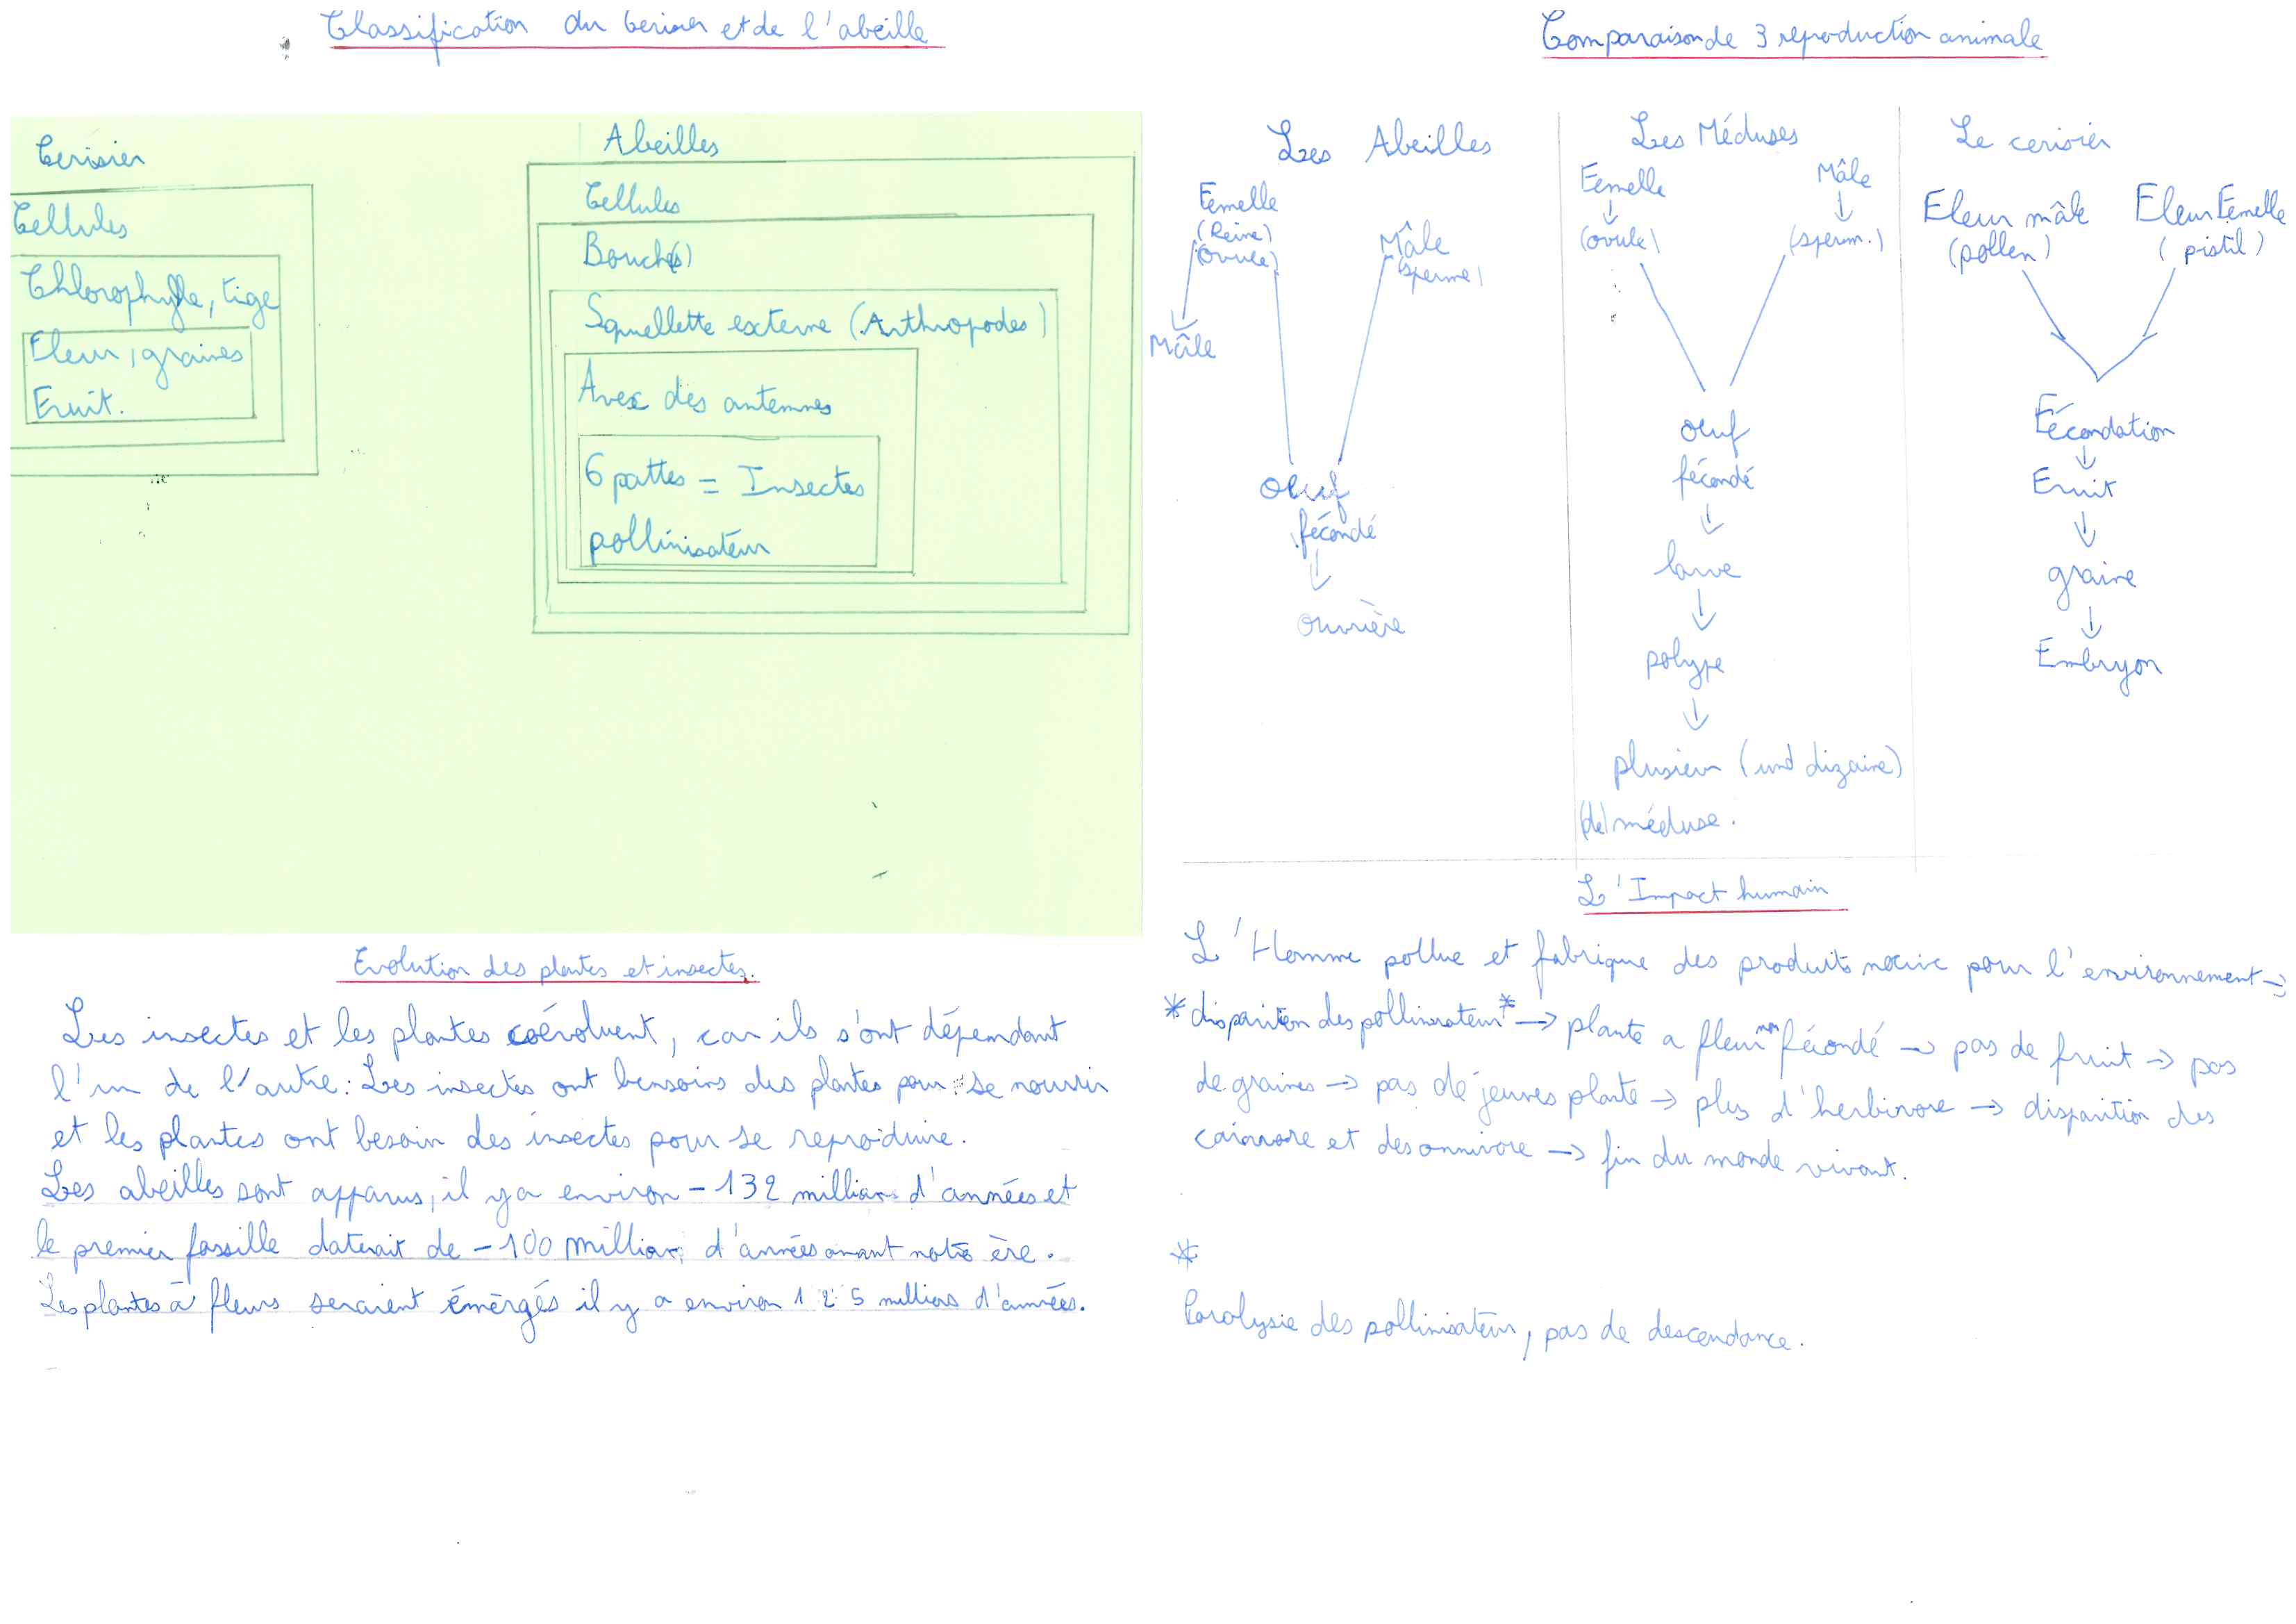 Classification du Cerisier et de l'abeille
Cerisier
Cellules
Chlorophylle, tige
Fleur, graines
Fruit.
Abeilles
Cellules
Bouche(s)
Squellette externe (Arthropodes)
Avec des antennes
6 pattes = Insectes
pollinisateur
Evolution des plantes et insectes.
Les insectes et les plantes coévoluent, car ils s'ont dépendant
l'un de l'autre: Les insectes ont bensoins des plantes pour se nourrir
et les plantes ont besoin des insectes pour se reproduire.
Les abeilles sont apparus, il y a environ -132 millions d'années et
le premier fossille daterait de -100 millions d'années avant notre ère.
Les plantes à fleurs seraient émergés il y a environ 125 millions d'années.
Comparaison de 3 reproduction animale
Les Abeilles
Femelle
(Reine)
(ovule)
Mâle
(sperme)
Mâle
Oeuf
fécondé
Ouvrière
Les Méduses
Femelle
(ovule)
Mâle
(sperm.)
Oeuf
fécondé
larve
polype
plusieur (und dizaine)
(de) méduse.
Le cerisier
Fleur mâle
(pollen)
Fleur Femelle
(pistil)
Fécondation
Fruit
graine
Embryon
L'Impact humain
L'Homme pollue et fabrique des produits nocive pour l'environnement →
*disparition des pollinisateur* → plante a fleur non fécondé → pas de fruit → pas
de graines → pas de jeunes plante → plus d'herbivore → disparition des
carnivore et des omnivore → fin du monde vivant.
*
Paralysie des pollinisateur, pas de descendance.